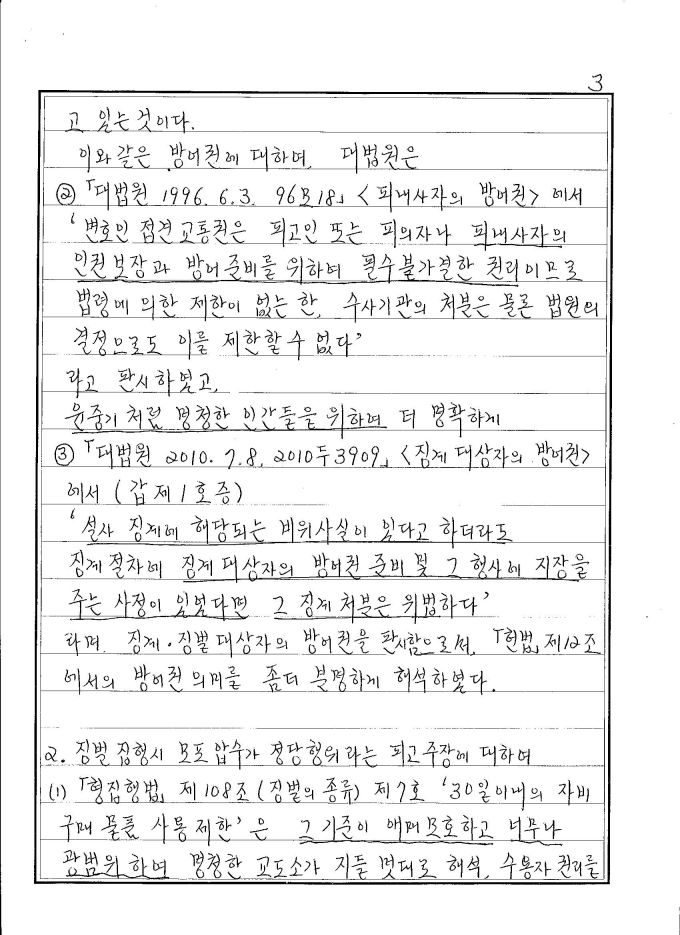 3
고 있는 것이다.
이와 같은 방어권에 대하여, 대법원은
② 「대법원 1996. 6. 3. 96모18」 <피내사자의 방어권> 에서
'변호인 접견교통권은 피고인 또는 피의자나 피내사자의
인권보장과 방어준비를 위하여 필수불가결한 권리이므로
법령에 의한 제한이 없는 한, 수사기관의 처분은 물론 법원의
결정으로도 이를 제한할 수 없다'
라고 판시하였고,
윤중기처럼 멍청한 인간들을 위하여 더 명확하게
③ 「대법원 2010. 7. 8. 2010두3909」 <징계대상자의 방어권>
에서 (갑 제1호증)
'설사 징계에 해당되는 비위사실이 있다고 하더라도
징계절차에 징계대상자의 방어권 준비 및 그 행사에 지장을
주는 사정이 있었다면 그 징계처분은 위법하다'
라며, 징계·징벌대상자의 방어권을 판시함으로써, 「헌법」 제12조
에서의 방어권 의미를 좀더 분명하게 해석하였다.
2. 징벌 집행시 모포 압수가 정당행위라는 피고주장에 대하여
(1) 「형집행법」 제108조 (징벌의 종류) 제7호 '30일이내의 자비
구매물품 사용제한'은 그 기준이 애매모호하고 너무나
광범위하여 멍청한 교도소가 지들 멋대로 해석, 수용자 권리를